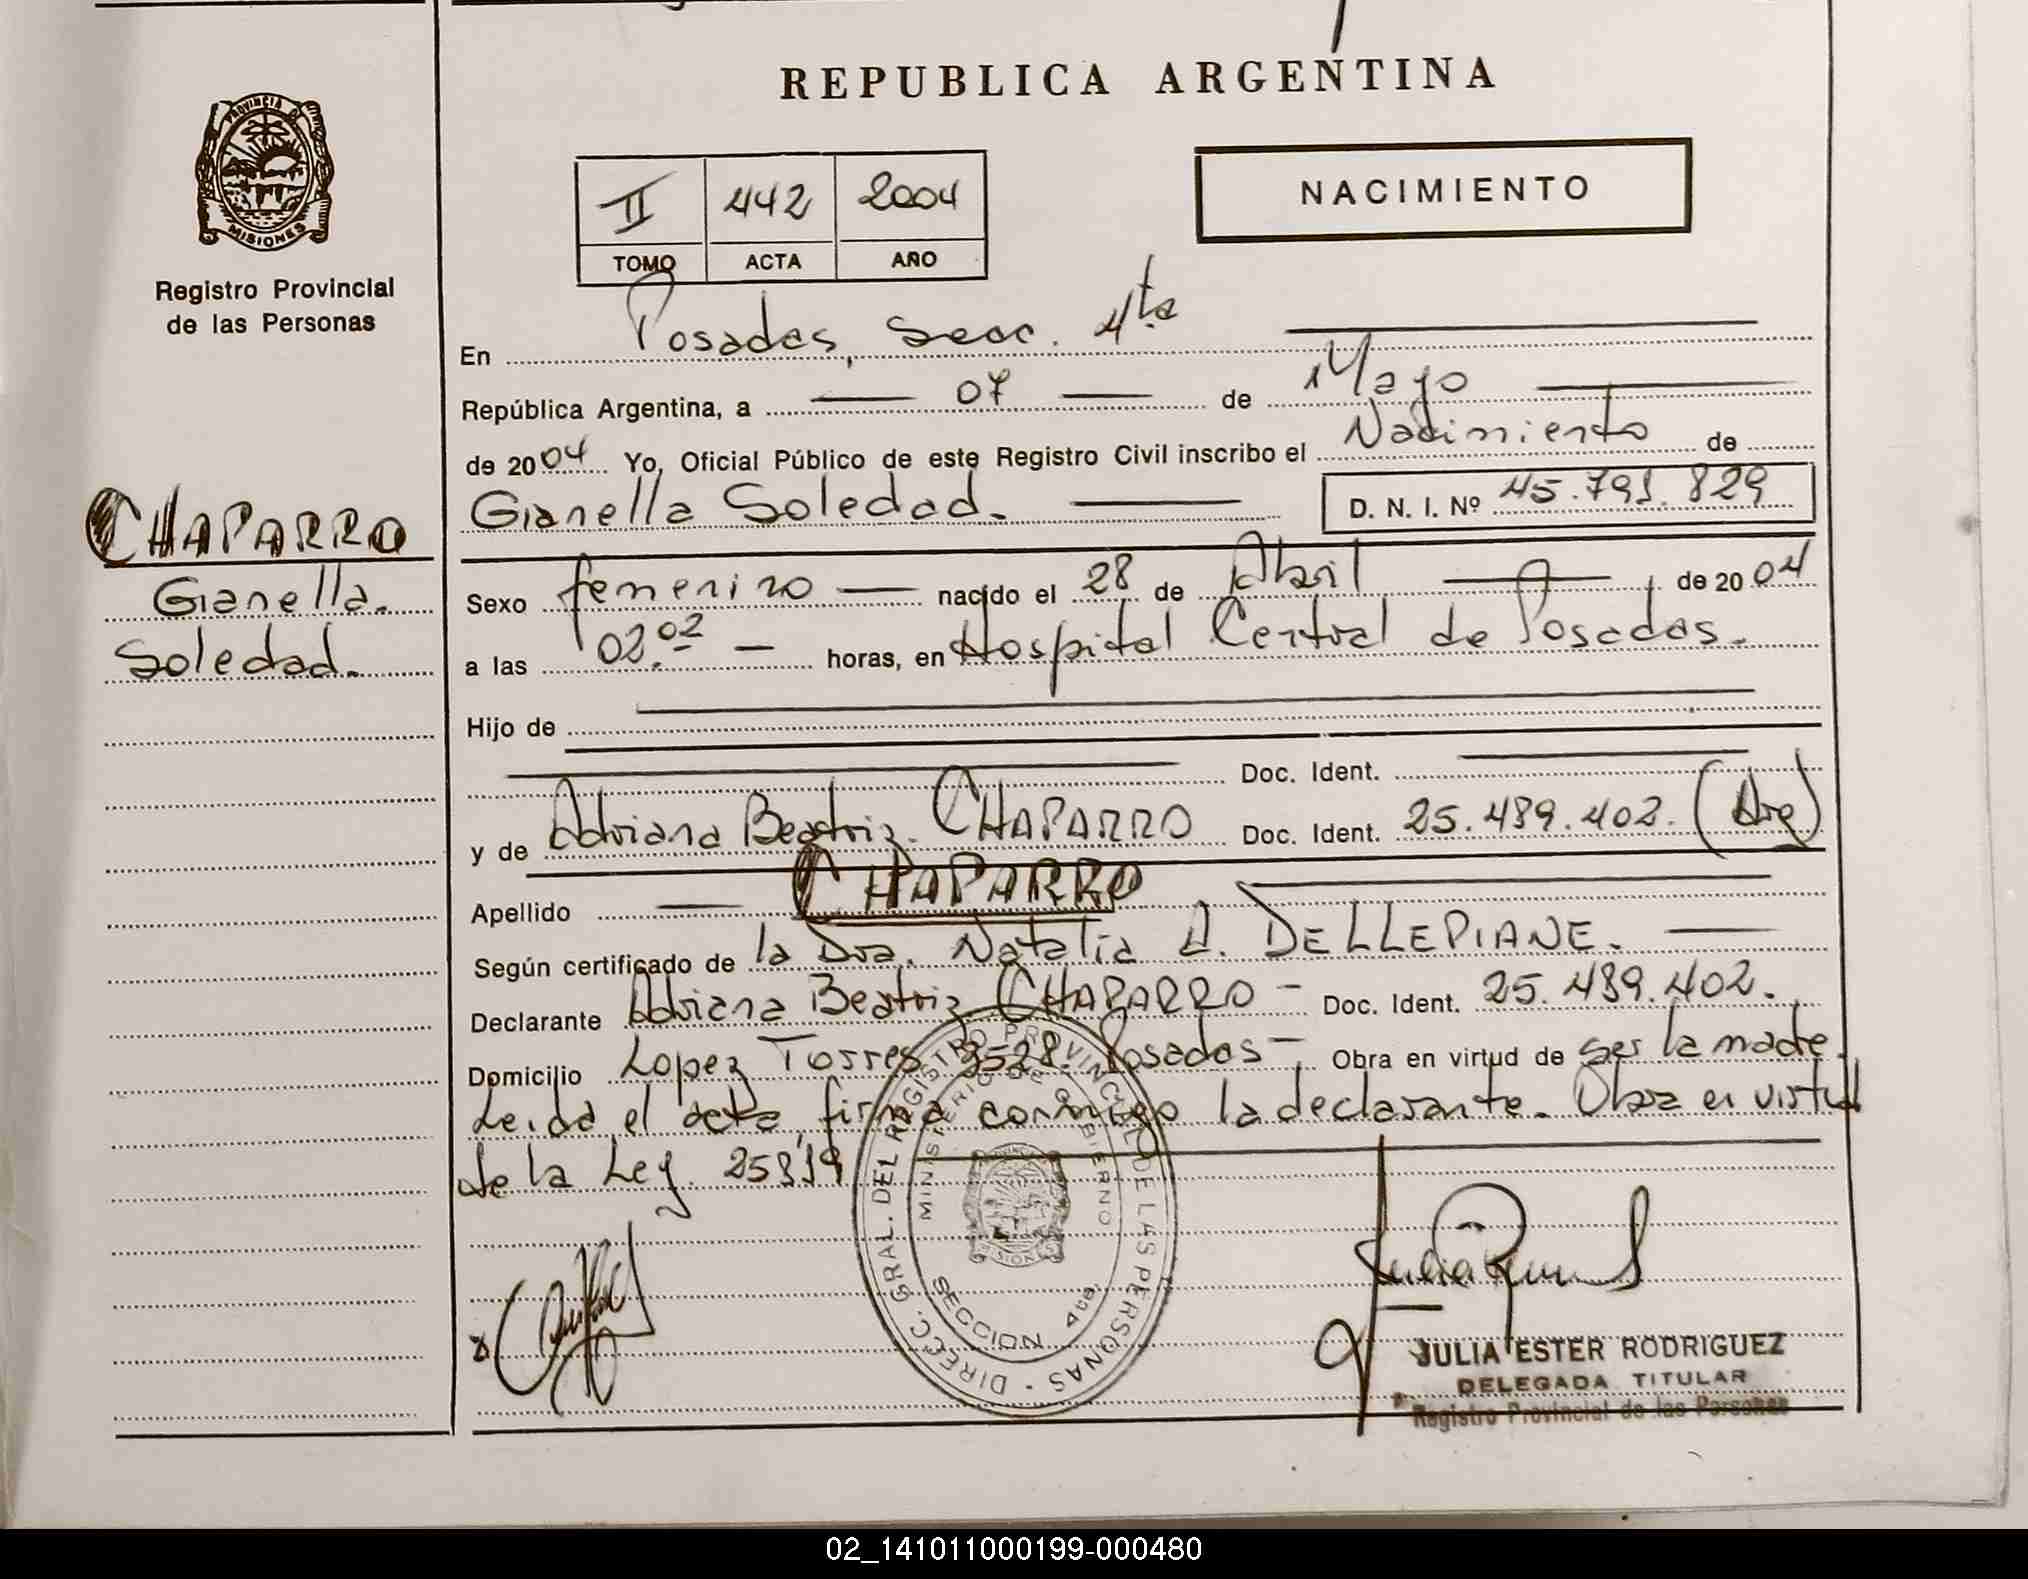 REPUBLICA ARGENTINA
PROVINCIA DE MISIONES
Registro Provincial
de las Personas
II 442 2004
TOMO ACTA AÑO
NACIMIENTO
En Posadas, Secc. 4ta
República Argentina, a 07 de Mayo
de 2004 Yo, Oficial Público de este Registro Civil inscribo el Nacimiento de
Gianella Soledad. D. N. I. Nº 45.791.829
CHAPARRO
Gianella
Soledad.
Sexo femenino nacido el 28 de Abril de 2004
a las 02:02 horas, en Hospital Central de Posadas.
Hijo de
Doc. Ident.
y de Adriana Beatriz CHAPARRO Doc. Ident. 25.489.402. (Arg)
Apellido CHAPARRO
Según certificado de la Dra. Natalia A. DELLEPIANE.
Declarante Adriana Beatriz CHAPARRO - Doc. Ident. 25.489.402.
Domicilio Lopez Torres 3528. Posadas - Obra en virtud de ser la madre.
Leida el acta, firma conmigo la declarante. Obra en virtud
de la Ley 25819
DIRECC. GRAL. DEL REGISTRO PROVINCIAL DE LAS PERSONAS
MINISTERIO DE GOBIERNO
MISIONES
SECCION 4ta.
JULIA ESTER RODRIGUEZ
DELEGADA TITULAR
Registro Provincial de las Personas
02_141011000199-000480